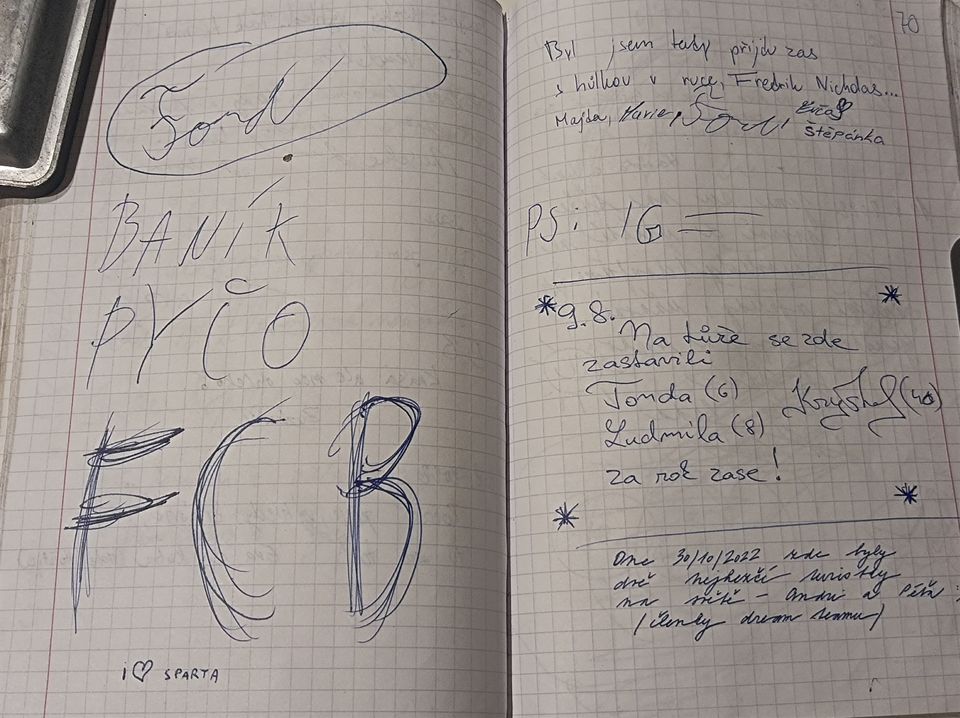 Ford
BANÍK
PYČO
FCB
i ♡ SPARTA
70
Byl jsem tady přijdu zas
s hůlkou v ruce, Fredrik Nicholas...
Majda, Marie, Ford, Evča♡
Štěpánka
PS: IG =
9.8.
Na túře se zde
zastavili
Tonda (6) Kryštof (40)
Ludmila (8)
za rok zase!
Dne 30/10/2022 zde byly
dvě nejhezčí turistky
na světě - Andri a Péťa :
(členky dream teamu)